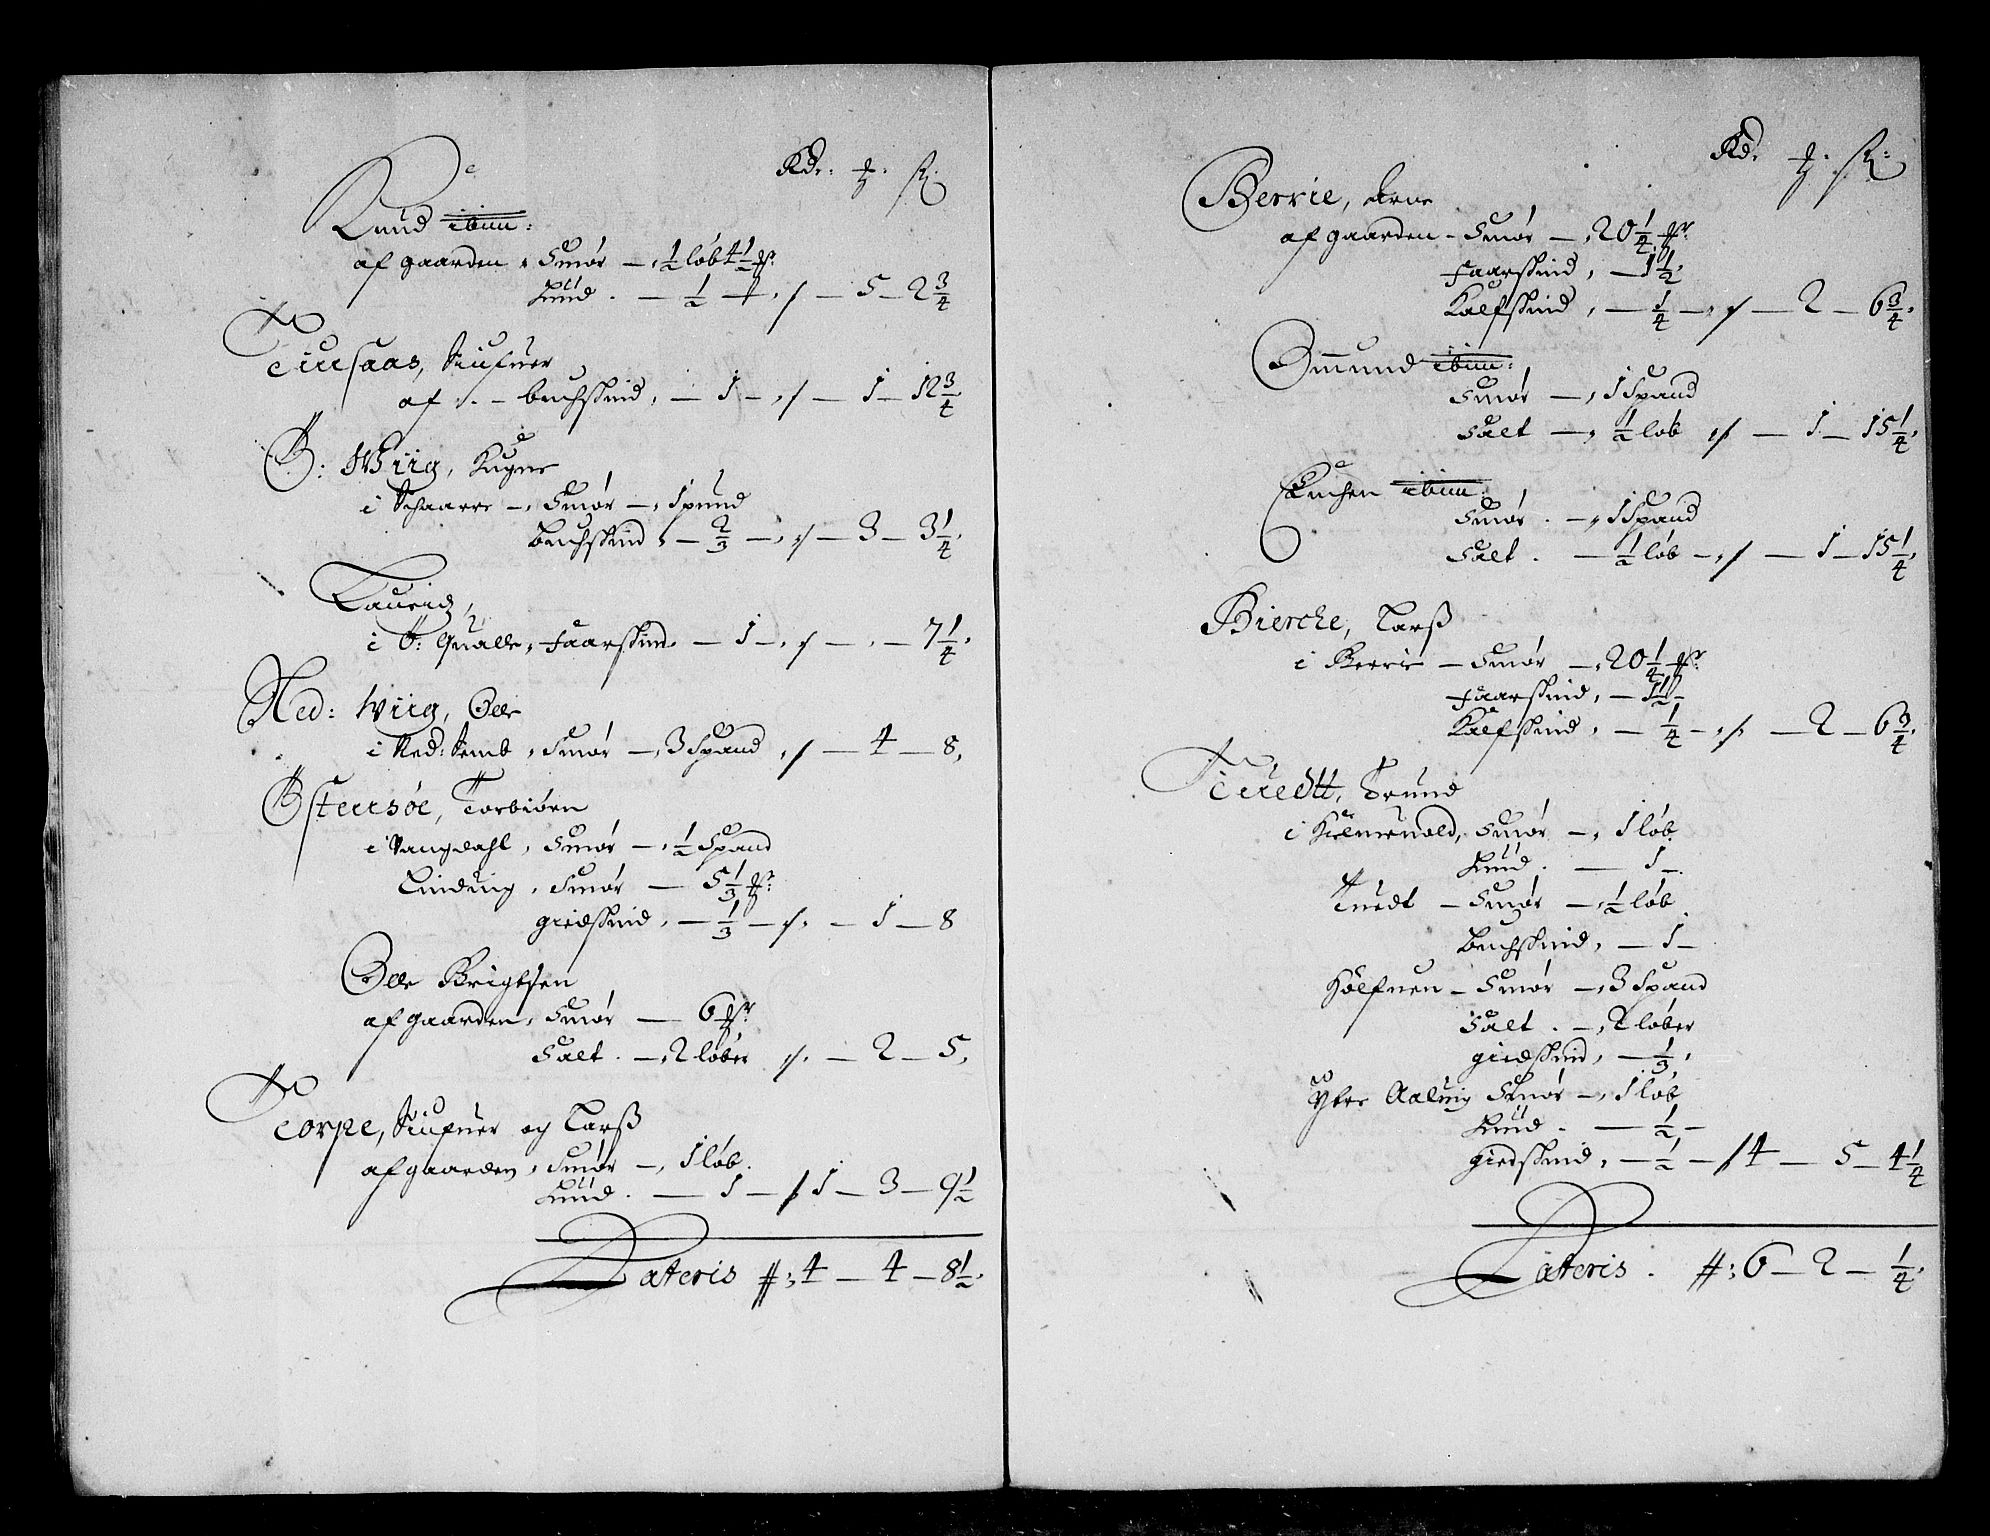 Rdr: ꝑ: ß:
Knud ibim:
af gaarden, Smør — ½ løb 4½ ꝑr
Huud. — ½ — / — 5 — 2¾
Tuesaas, Siufuer
af — buchskind, — 1 — / — 1 — 12¾
Ø: Wiig, Mogns
i Schaarre —, Smør —, 1 spand
buchskind, — ⅔ — / — 3 — 3¼
Lauridz,
i Ø: Qualle, Faarskind — 1 — / — 7¼
Ned: Wiig, Olle
i Ned: Semb, Smør — 3 Spand / — 4 — 8,
Østersøe, Torbiørn
i Vangdahl, Smør — ½ Spand
Linduig, Smør — 5⅓ ꝑr:
giedskind, — ⅓ — / — 1 — 8
Olle Brigtsen
af gaarden, Smør — 6 ꝑr
Salt. — 2 løber / — 2 — 5,
Torpe, Siufuer og Larß
af gaarden, Smør —, 1 løb.
Huud. — 1 — / 1 — 3 — 9½
Lateris #: 4 — 4 — 8½,
Rdr ꝑ: ß:
Berrie, Arne
af gaarden — Smør — 20¼ ꝑr
Faarskind, — 1½,
Kalfskind, — ¼ — / — 2 — 6¾,
Omund ibim:
Smør — 1 Spand
Salt —, ½ løb / — 1 — 15¼,
Enchen ibim:
Smør. — 1 Spand
Salt. — ½ løb — / — 1 — 15¼,
Bierche, Larß
i Berrie — Smør — 20¼ ꝑr
Faarskind, — 1½ —
Kalfskind, — ¼ — / — 2 — 6¾,
Tuedtt, Trund
i Hielmeuold, Smør —, 1 løb.
Huud. — 1 —
Tuedt — Smør — ½ løb
buchskind, — 1 —
Hølfuen — Smør — 3 Spand
Salt. — 2 løber
giedskind, — ⅓,
Ytre Aaluig Smør —, 1 løb
Huud. — ½ —
giedskind, — ½ — / 4 — 5 — 4¼
Lateris. #: 6 — 2 — ¼,